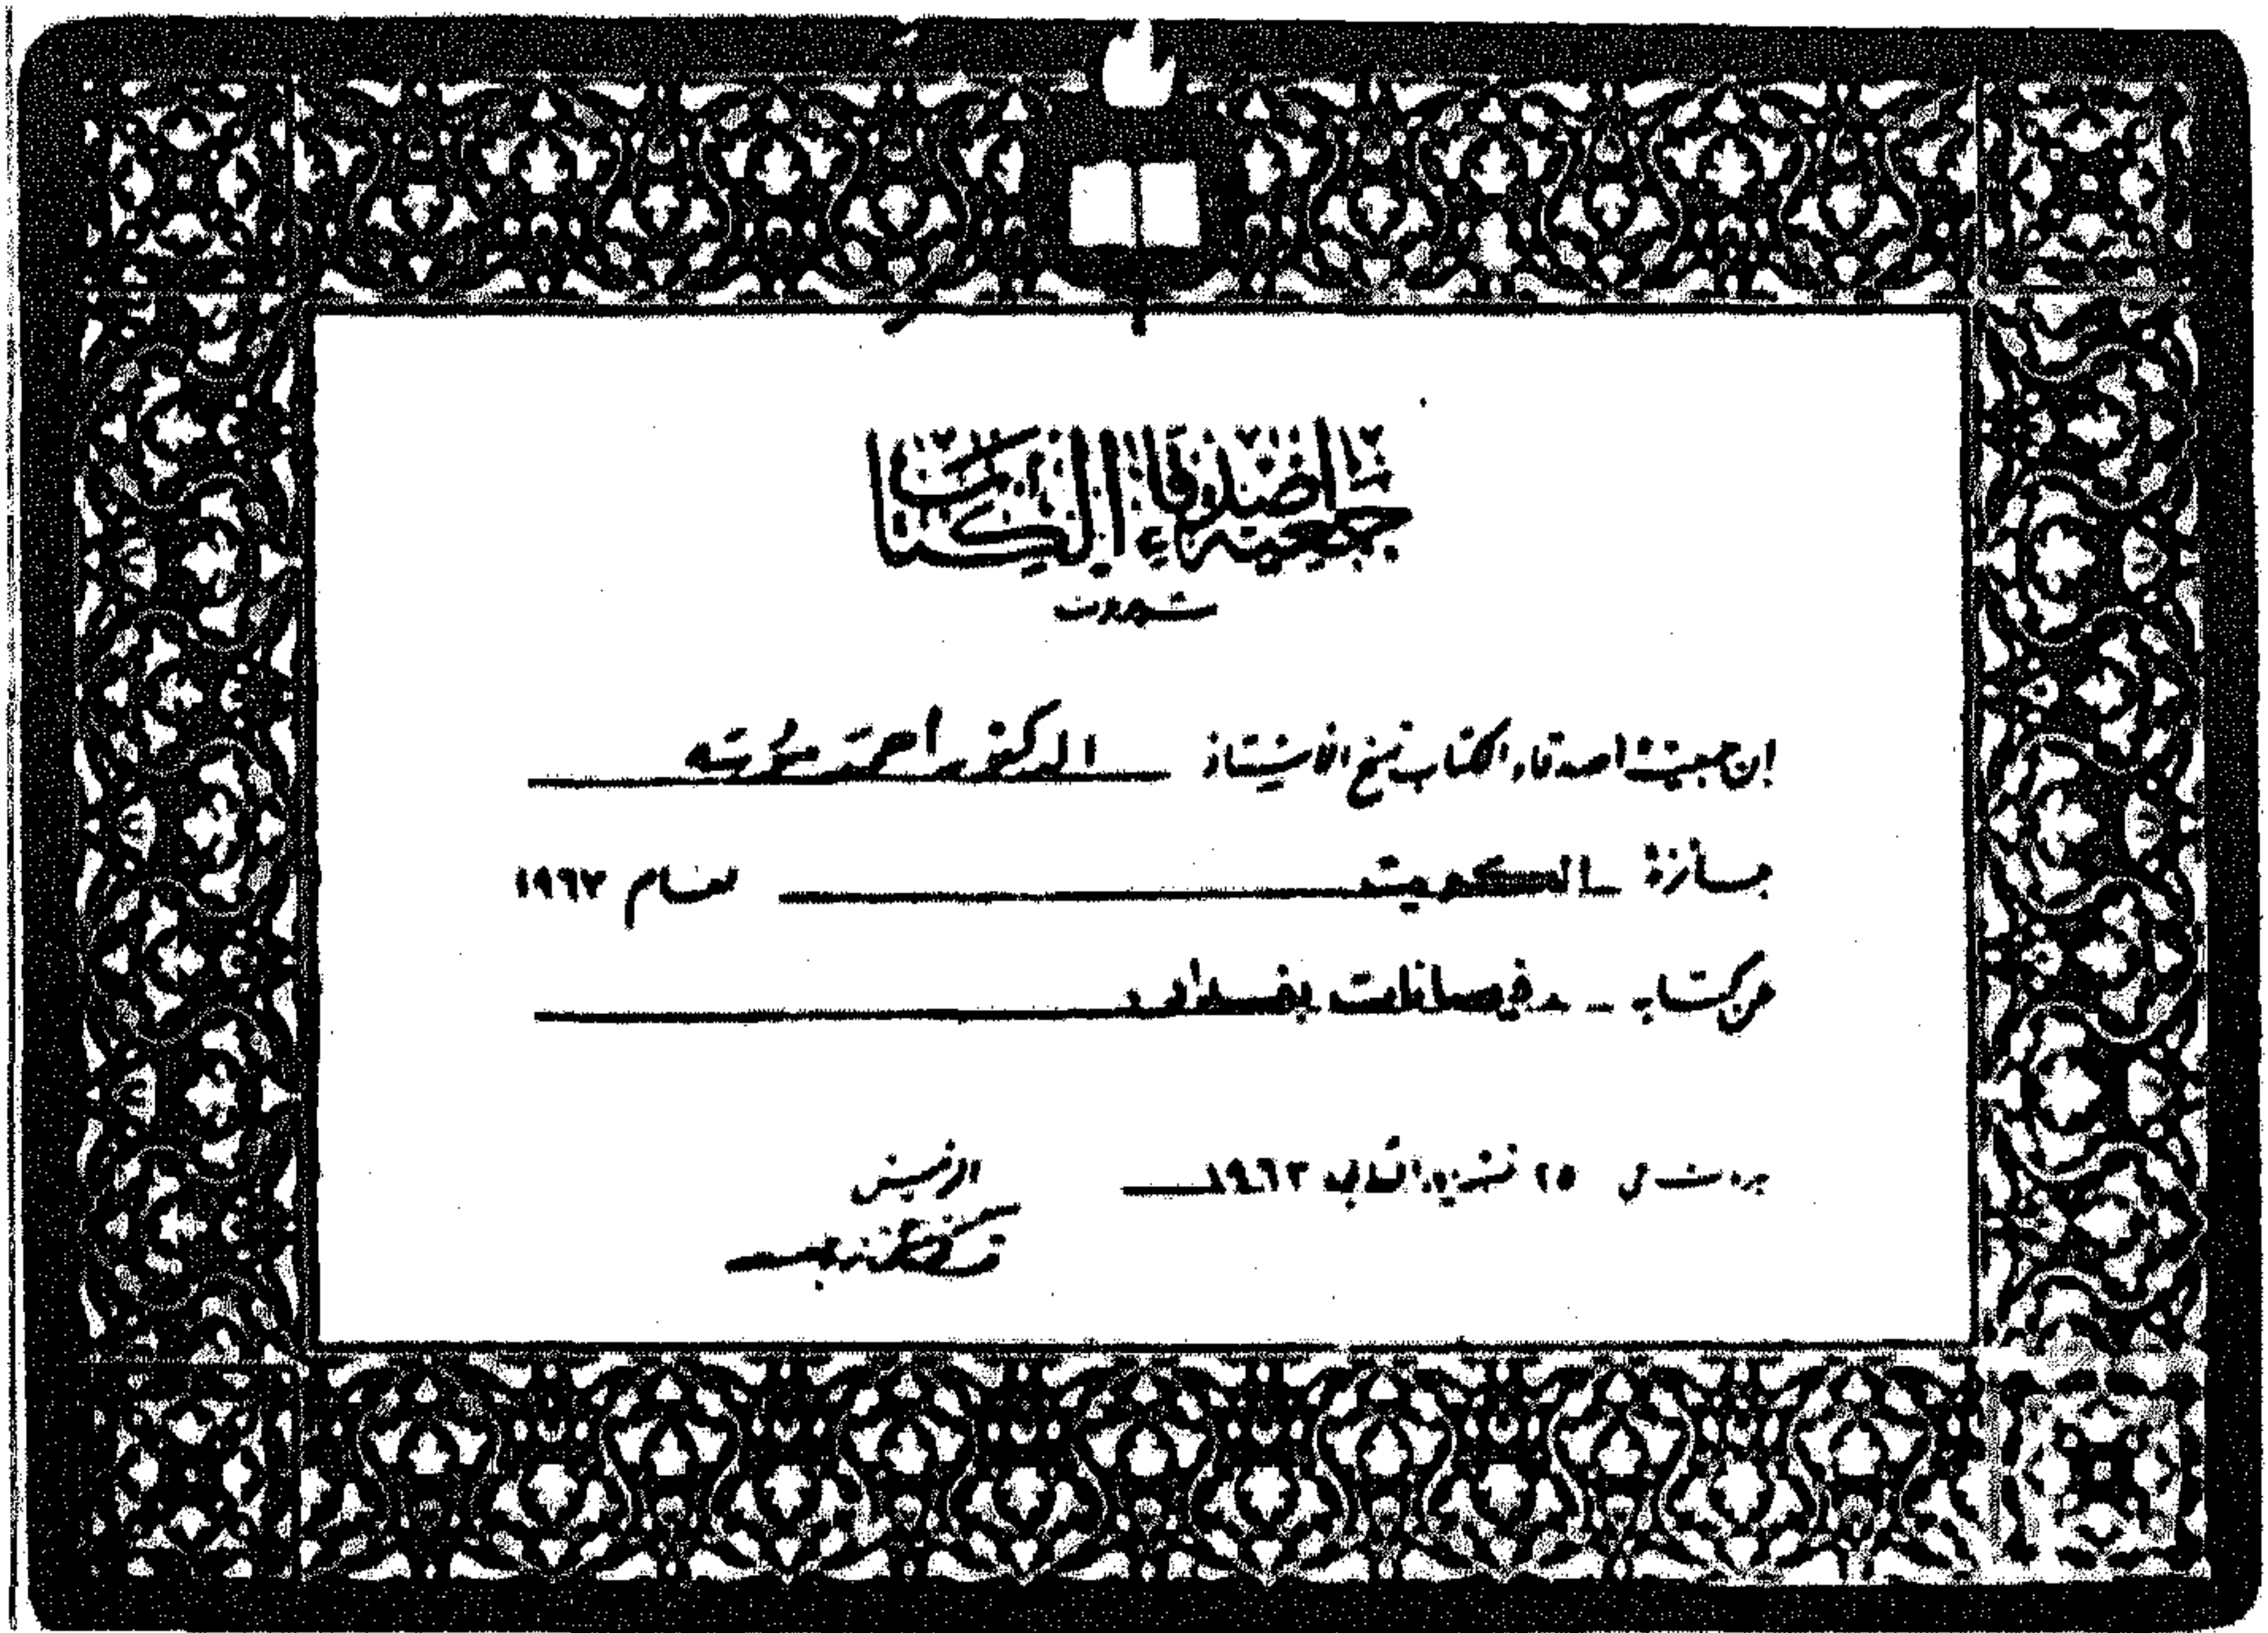 جمعية أصدقاء الكتاب
بيروت
إن جمعية اصدقاء الكتاب تمنح الاستاذ الدكتور احمد سوسه
جائزة الكويت لعام ١٩٦٣
عن كتابه فيضانات بغداد
بيروت في ٢٥ تشرين الثاني ١٩٦٣
الرئيس